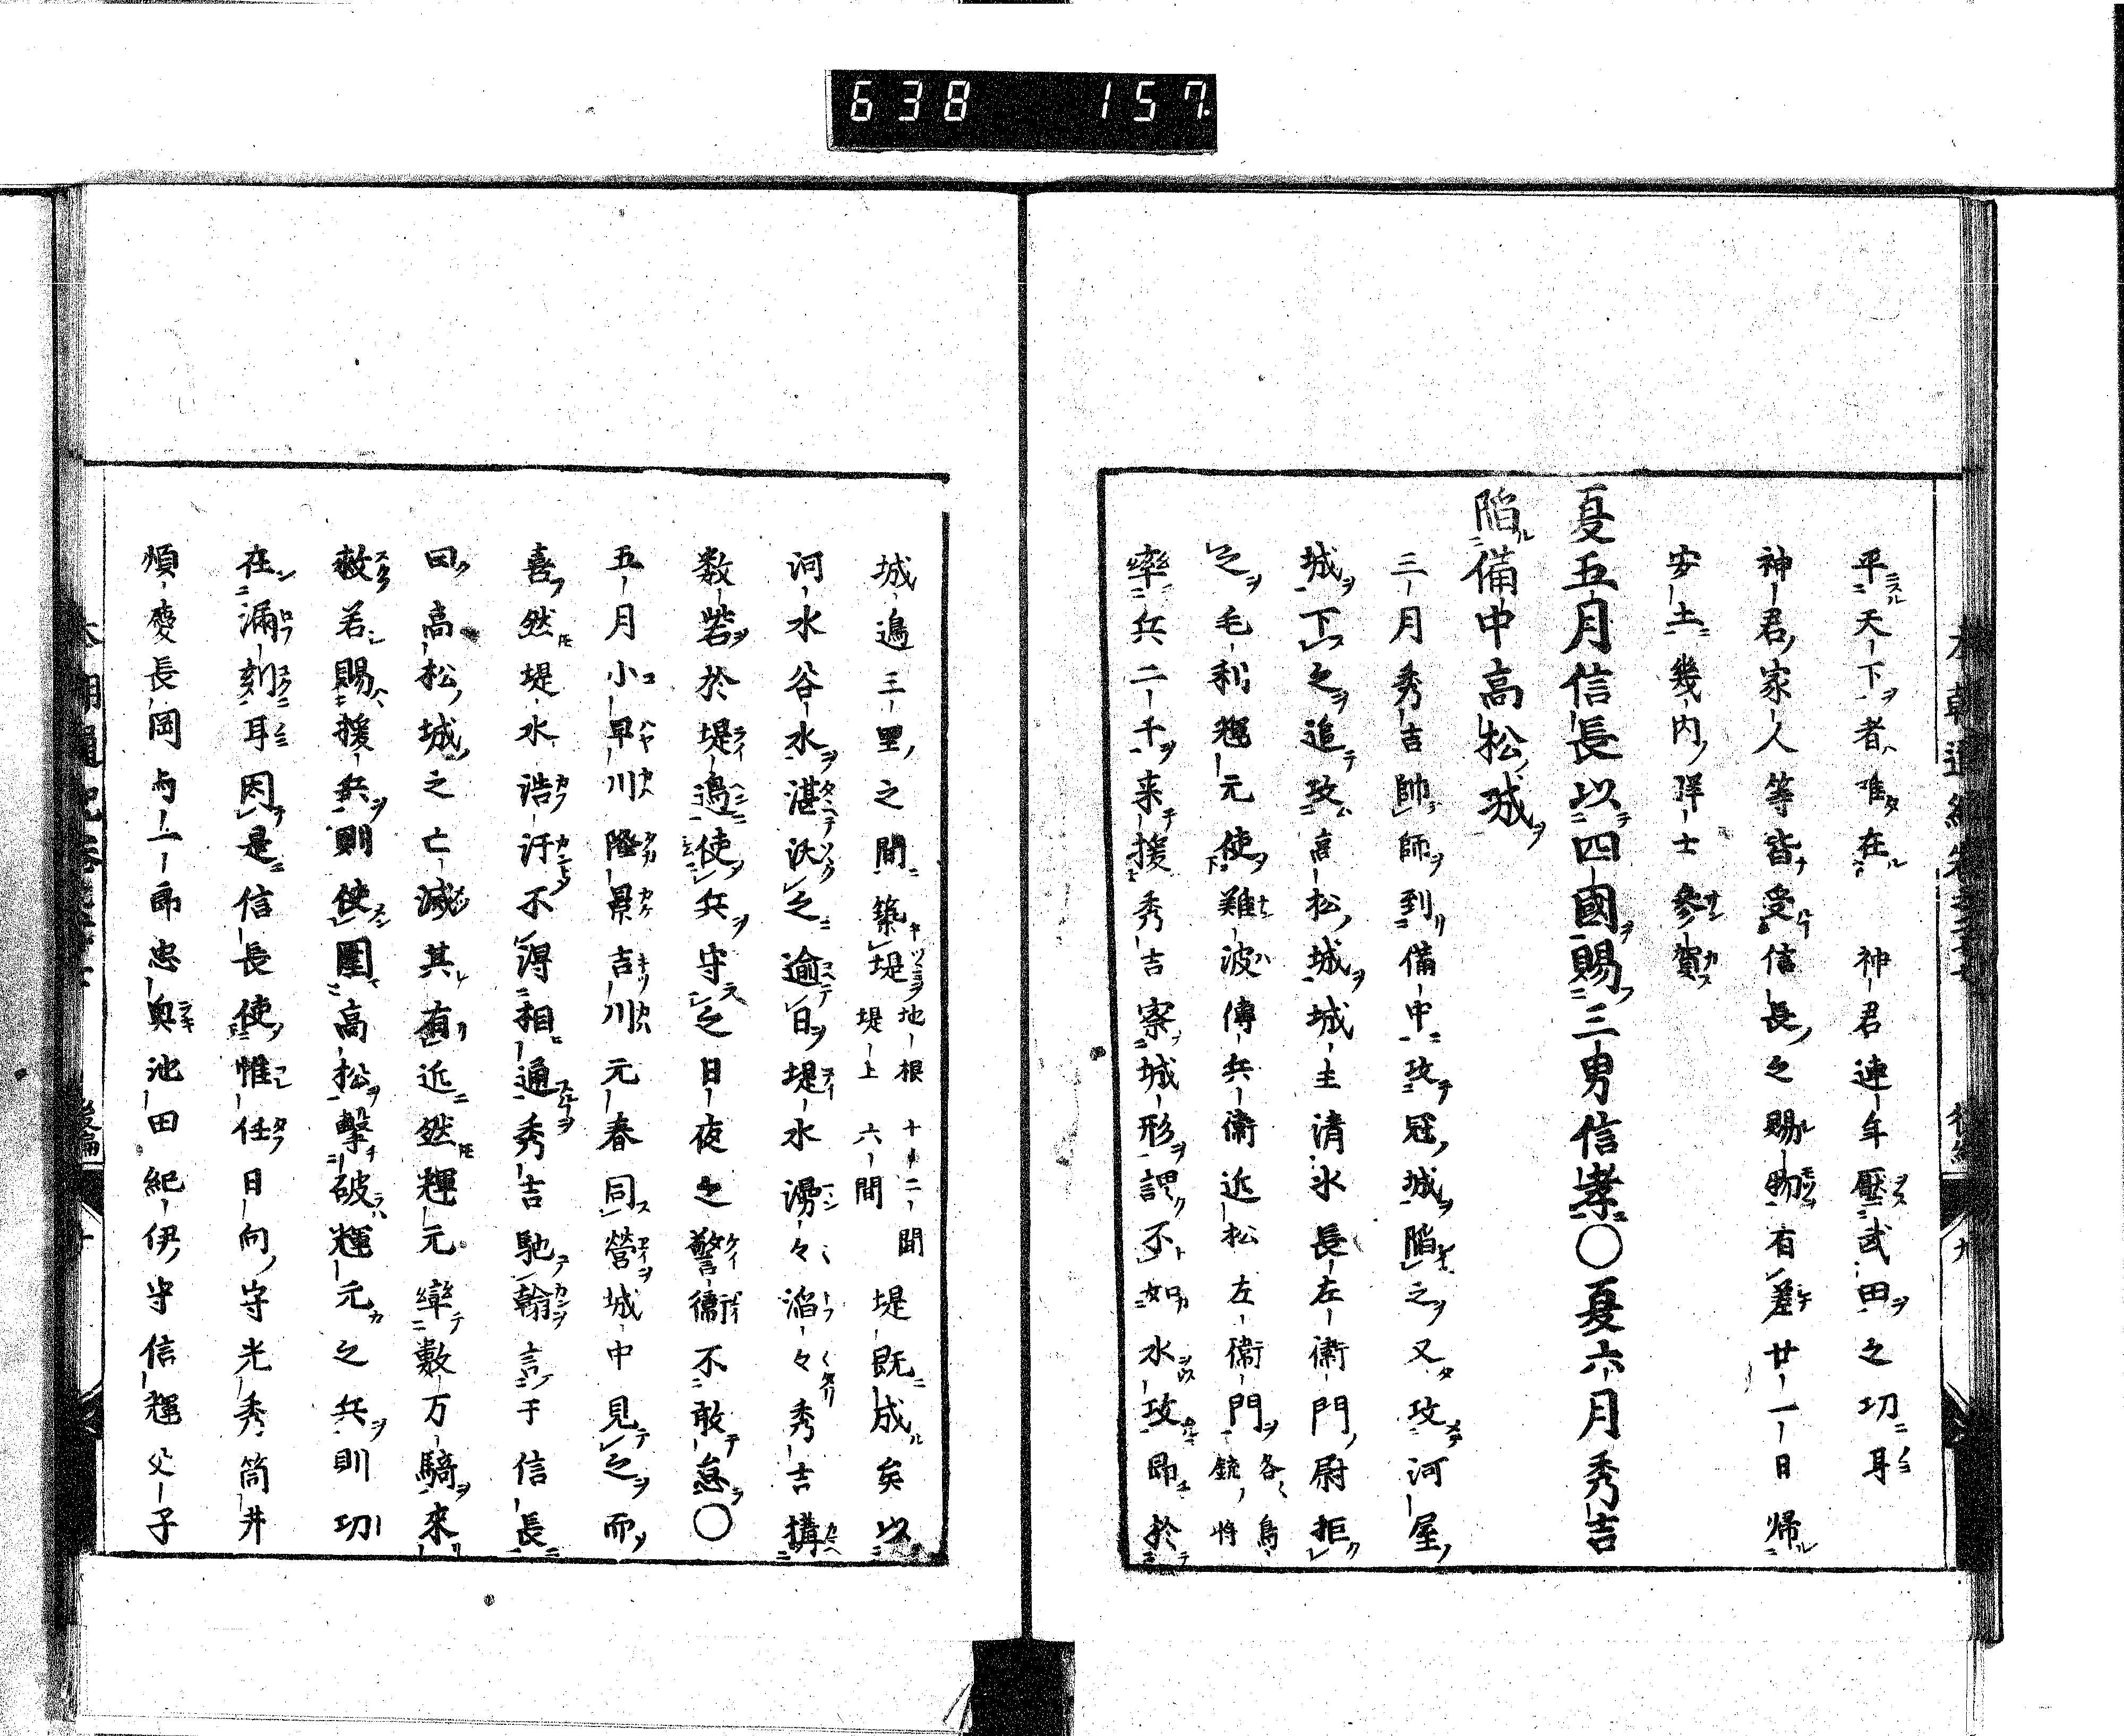 638 157
平天下者唯在 神君連年壓武田之功耳
神君家人等皆受信長之賜物有差廿一日歸
安土幾内群士參賀
夏五月信長以四國賜三男信孝○夏六月秀吉
陷備中高松城
三月秀吉帥師到備中攻冠城陷之又攻河屋
城下之追攻高松城城主清水長左衛門尉拒
之毛利輝元使難波傳兵衛近松左衛門各鳥銃將
率兵二千来援秀吉察城形謂不如水攻即於
城邊三里之間築堤地根十二間堤上六間堤既成矣以
河水谷水湛沃之逾白堤水湧々滔々秀吉搆
数砦於堤邊使兵守之日夜之警衞不敢怠○
五月小早川隆景吉川元春同營城中見之而
喜然堤水浩汗不得相通秀吉馳翰言于信長
曰高松城之亡滅其有近然輝元率數万騎來
救若賜援兵則使圍高松擊破輝元之兵則功
在漏刻耳因是信長使惟任日向守光秀筒井
順慶長岡与一郎忠奥池田紀伊守信輝父子